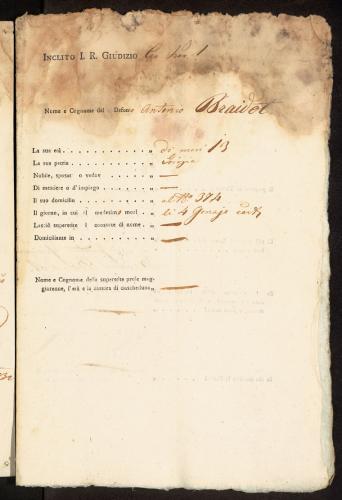 INCLITO I. R. GIUDIZIO
Nome e Cognome del Defonto Antonio Braidot
La sua età . . . . . . . . . . . . „ di mesi 13
La sua patria . . . . . . . . . . . „
Nobile, sposat o vedov . . . . . . . „ —
Di mestiere o d'impiego . . . . . . . „ —
Il suo domicilio . . . . . . . . . . „ al N.º 374
Il giorno, in cui il medesimo morì . . . „ li 4
Lasciò superstite il consorte di nome . . „ —
Domiciliante in . . . . . . . . . . „ —
Nome e Cognome della superstite prole mag-
giorenne, l'età e la dimora di ciascheduno „ —